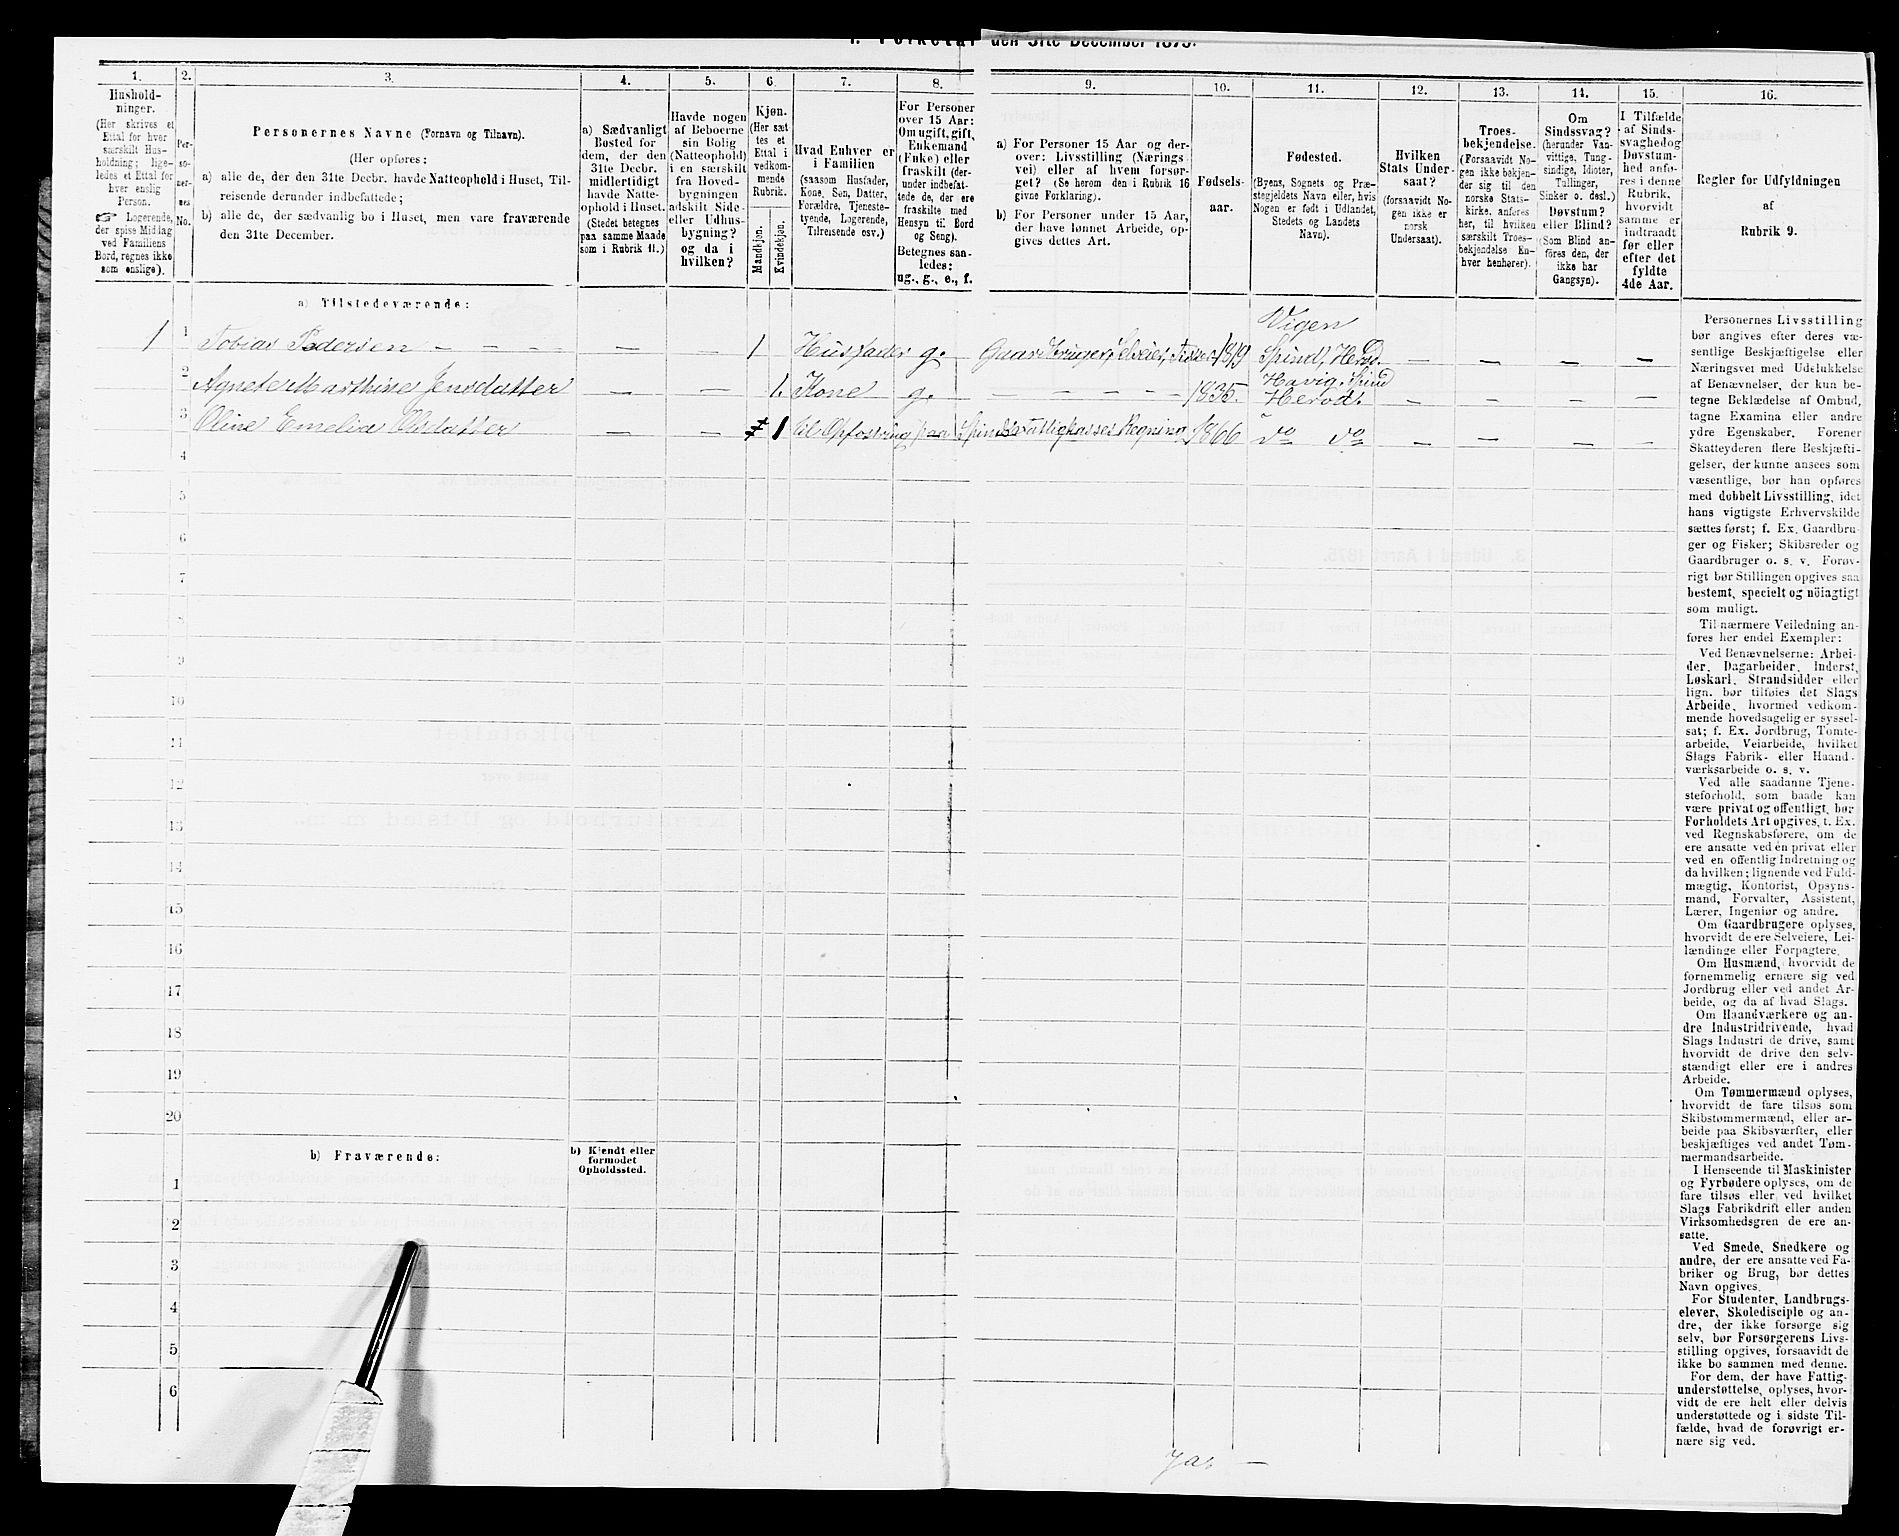 I. Folketal den 31te December 1875.
1. 2. 3. 4. 5. 6. 7. 8. 9. 10. 11. 12. 13. 14. 15. 16.
Hushold-
ninger.
(Her skrives et
Ettal for hver
særskilt Hus-
holdning; lige-
ledes et Ettal for
hver enslig
Person.
☞ Logerende,
der spise Middag
ved Familiens
Bord, regnes ikke
som enslige).
Per-
so-
ner-
nes
No.
Personernes Navne (Fornavn og Tilnavn).
(Her opføres:
a) alle de, der den 31te Decbr. havde Natteophold i Huset, Til-
reisende derunder indbefattede;
b) alle de, der sædvanlig bo i Huset, men vare fraværende
den 31te December.
a) Sædvanligt
Bosted for
dem, der den
31te Decbr.
midlertidigt
havde Natte-
ophold i Huset.
(Stedet betegnes
paa samme Maade
som i Rubrik 11.)
Havde nogen
af Beboerne
sin Bolig
(Natteophold)
i en særskilt
fra Hoved-
bygningen
adskilt Side-
eller Udhus-
bygning?
og da i
hvilken?
Kjøn.
(Her sæt
tes et
Ettal i
vedkom-
mende
Rubrik.
Mandkjøn.
Kvindekjøn.
Hvad Enhver er
i Familien
(saasom Husfader,
Kone, Søn, Datter,
Forældre, Tjeneste-
tyende, Logerende,
Tilreisende osv.)
For Personer
over 15 Aar:
Om ugift, gift,
Enkemand
(Enke) eller
fraskilt (der-
under indbefat-
tede de, der ere
fraskilte med
Hensyn til Bord
og Seng).
Betegnes saa-
ledes:
ug., g., e., f.
a) For Personer 15 Aar og der-
over: Livsstilling (Nærings
vei) eller af hvem forsør-
get? (Se herom den i Rubrik 16
givne Forklaring).
b) For Personer under 15 Aar,
der have lønnet Arbeide, op-
gives dettes Art.
Fødsels-
aar.
Fødested.
(Byens, Sognets og Præ-
stegjeldets Navn eller, hvis
Nogen er født i Udlandet,
Stedets og Landets
Navn).
Hvilken
Stats Under-
saat?
(forsaavidt No-
gen ikke er
norsk
Undersaat).
Troes-
bekjendelse.
(Forsaavidt No-
gen ikke bekjen-
der sig til den
norske Stats-
kirke, anføres
her, til hvilken
særskilt Troes-
bekjendelse En-
hver henhører).
Om
Sindssvag?
(herunder Van-
vittige, Tung-
sindige, Idioter,
Tullinger,
Sinker o. desl.)
Døvstum?
eller Blind?
(Som Blind an-
føres den, der
ikke har
Gangsyn).
I Tilfælde
af Sinds-
svaghed og
Døvstum-
hed anfø-
res i denne
Rubrik,
hvorvidt
samme er
indtraadt
før eller
efter det
fyldte
4de Aar.
Regler for Udfyldningen
af
Rubrik 9.
a) Tilstedeværende:
1 1 Tobias Pedersen – – – – – – 1 Husfader g. Gaardbruger, Selveier, Fisker 1819 Vigen
Spind, Herod. – – – –
2 Agnete Marthine Jensdatter – – 1. Kone g. – – – – 1835. Havig, Spind
Herod. – – – –
3 Oline Emelie Olsdatter – – 1 til Opfostring paa Spinds Fattigkasses Regning 1866 do do – – – –
4
5
6
7
8
9
10
11
12
13
14
15
16
17
18
19
20
b) Fraværende:
b) Kjendt eller
formodet
Opholdssted.
1
2
3
4
5
6
Personernes Livsstilling
bør angives efter deres væ-
sentlige Beskjæftigelse eller
Næringsvei med Udelukkelse
af Benævnelser, der kun be-
tegne Beklædelse af Ombud,
tagne Examina eller andre
ydre Egenskaber. Forener
Skatteyderen flere Beskjæfti-
gelser, der kunne ansees som
væsentlige, bør han opføres
med dobbelt Livsstilling, idet
hans vigtigste Erhvervskilde
sættes først; f. Ex. Gaardbru-
ger og Fisker; Skibsreder og
Gaardbruger o. s. v. Forøv-
rigt bør Stillingen opgives saa
bestemt, specielt og nöiagtigt
som muligt.
Til nærmere Veiledning an-
føres her endel Exempler:
Ved Benævnelserne: Arbei-
der, Dagarbeider, Inderst,
Løskarl, Strandsidder eller
lign. bør tilføies det Slags
Arbeide, hvormed vedkom-
mende hovedsagelig er syssel-
sat; f. Ex. Jordbrug, Tomte-
arbeide, Veiarbeide, hvilket
Slags Fabrik- eller Haand-
værksarbeide o. s. v.
Ved alle saadanne Tjene-
steforhold, som baade kan
være privat og offentligt, bør
Forholdets Art opgives, t. Ex.
ved Regnskabsførere, om de
ere ansatte ved en privat eller
ved en offentlig Indretning og
da hvilken; lignende ved Fuld-
mægtig, Kontorist, Opsyns-
mand, Forvalter, Assistent,
Lærer, Ingeniør og andre.
Om Gaardbrugere oplyses,
hvorvidt de ere Selveiere, Lei-
lændinge eller Forpagtere.
Om Husmænd, hvorvidt de
fornemmelig ernære sig ved
Jordbrug eller ved andet Ar-
beide, og da af hvad Slags.
Om Haandværkere og an-
dre Industridrivende, hvad
Slags Industri de drive, samt
hvorvidt de drive den selv-
stændigt eller ere i andres
Arbeide.
Om Tømmermænd oplyses,
hvorvidt de fare tilsøs som
Skibstømmermænd, eller ar-
beide paa Skibsværfter, eller
beskjæftiges ved andet Tøm-
mermandsarbeide.
I Henseende til Maskinister
og Fyrbødere oplyses, om de
fare tilsøs eller ved hvilket
Slags Fabrikdrift eller anden
Virksomhedsgren de ere an-
satte.
Ved Smede, Snedkere og
andre, der ere ansatte ved Fa-
briker og Brug, bør dettes
Navn opgives.
For Studenter, Landbrugs-
elever, Skoledisciple og an-
dre, der ikke forsørge sig
selv, bør Forsørgerens Livs-
stilling opgives, forsaavidt de
ikke bo sammen med denne.
For dem, der have Fattig-
understøttelse, oplyses, hvor-
vidt de ere helt eller delvis
understøttede og i sidste Til-
fælde, hvad de forøvrigt er-
nære sig ved.